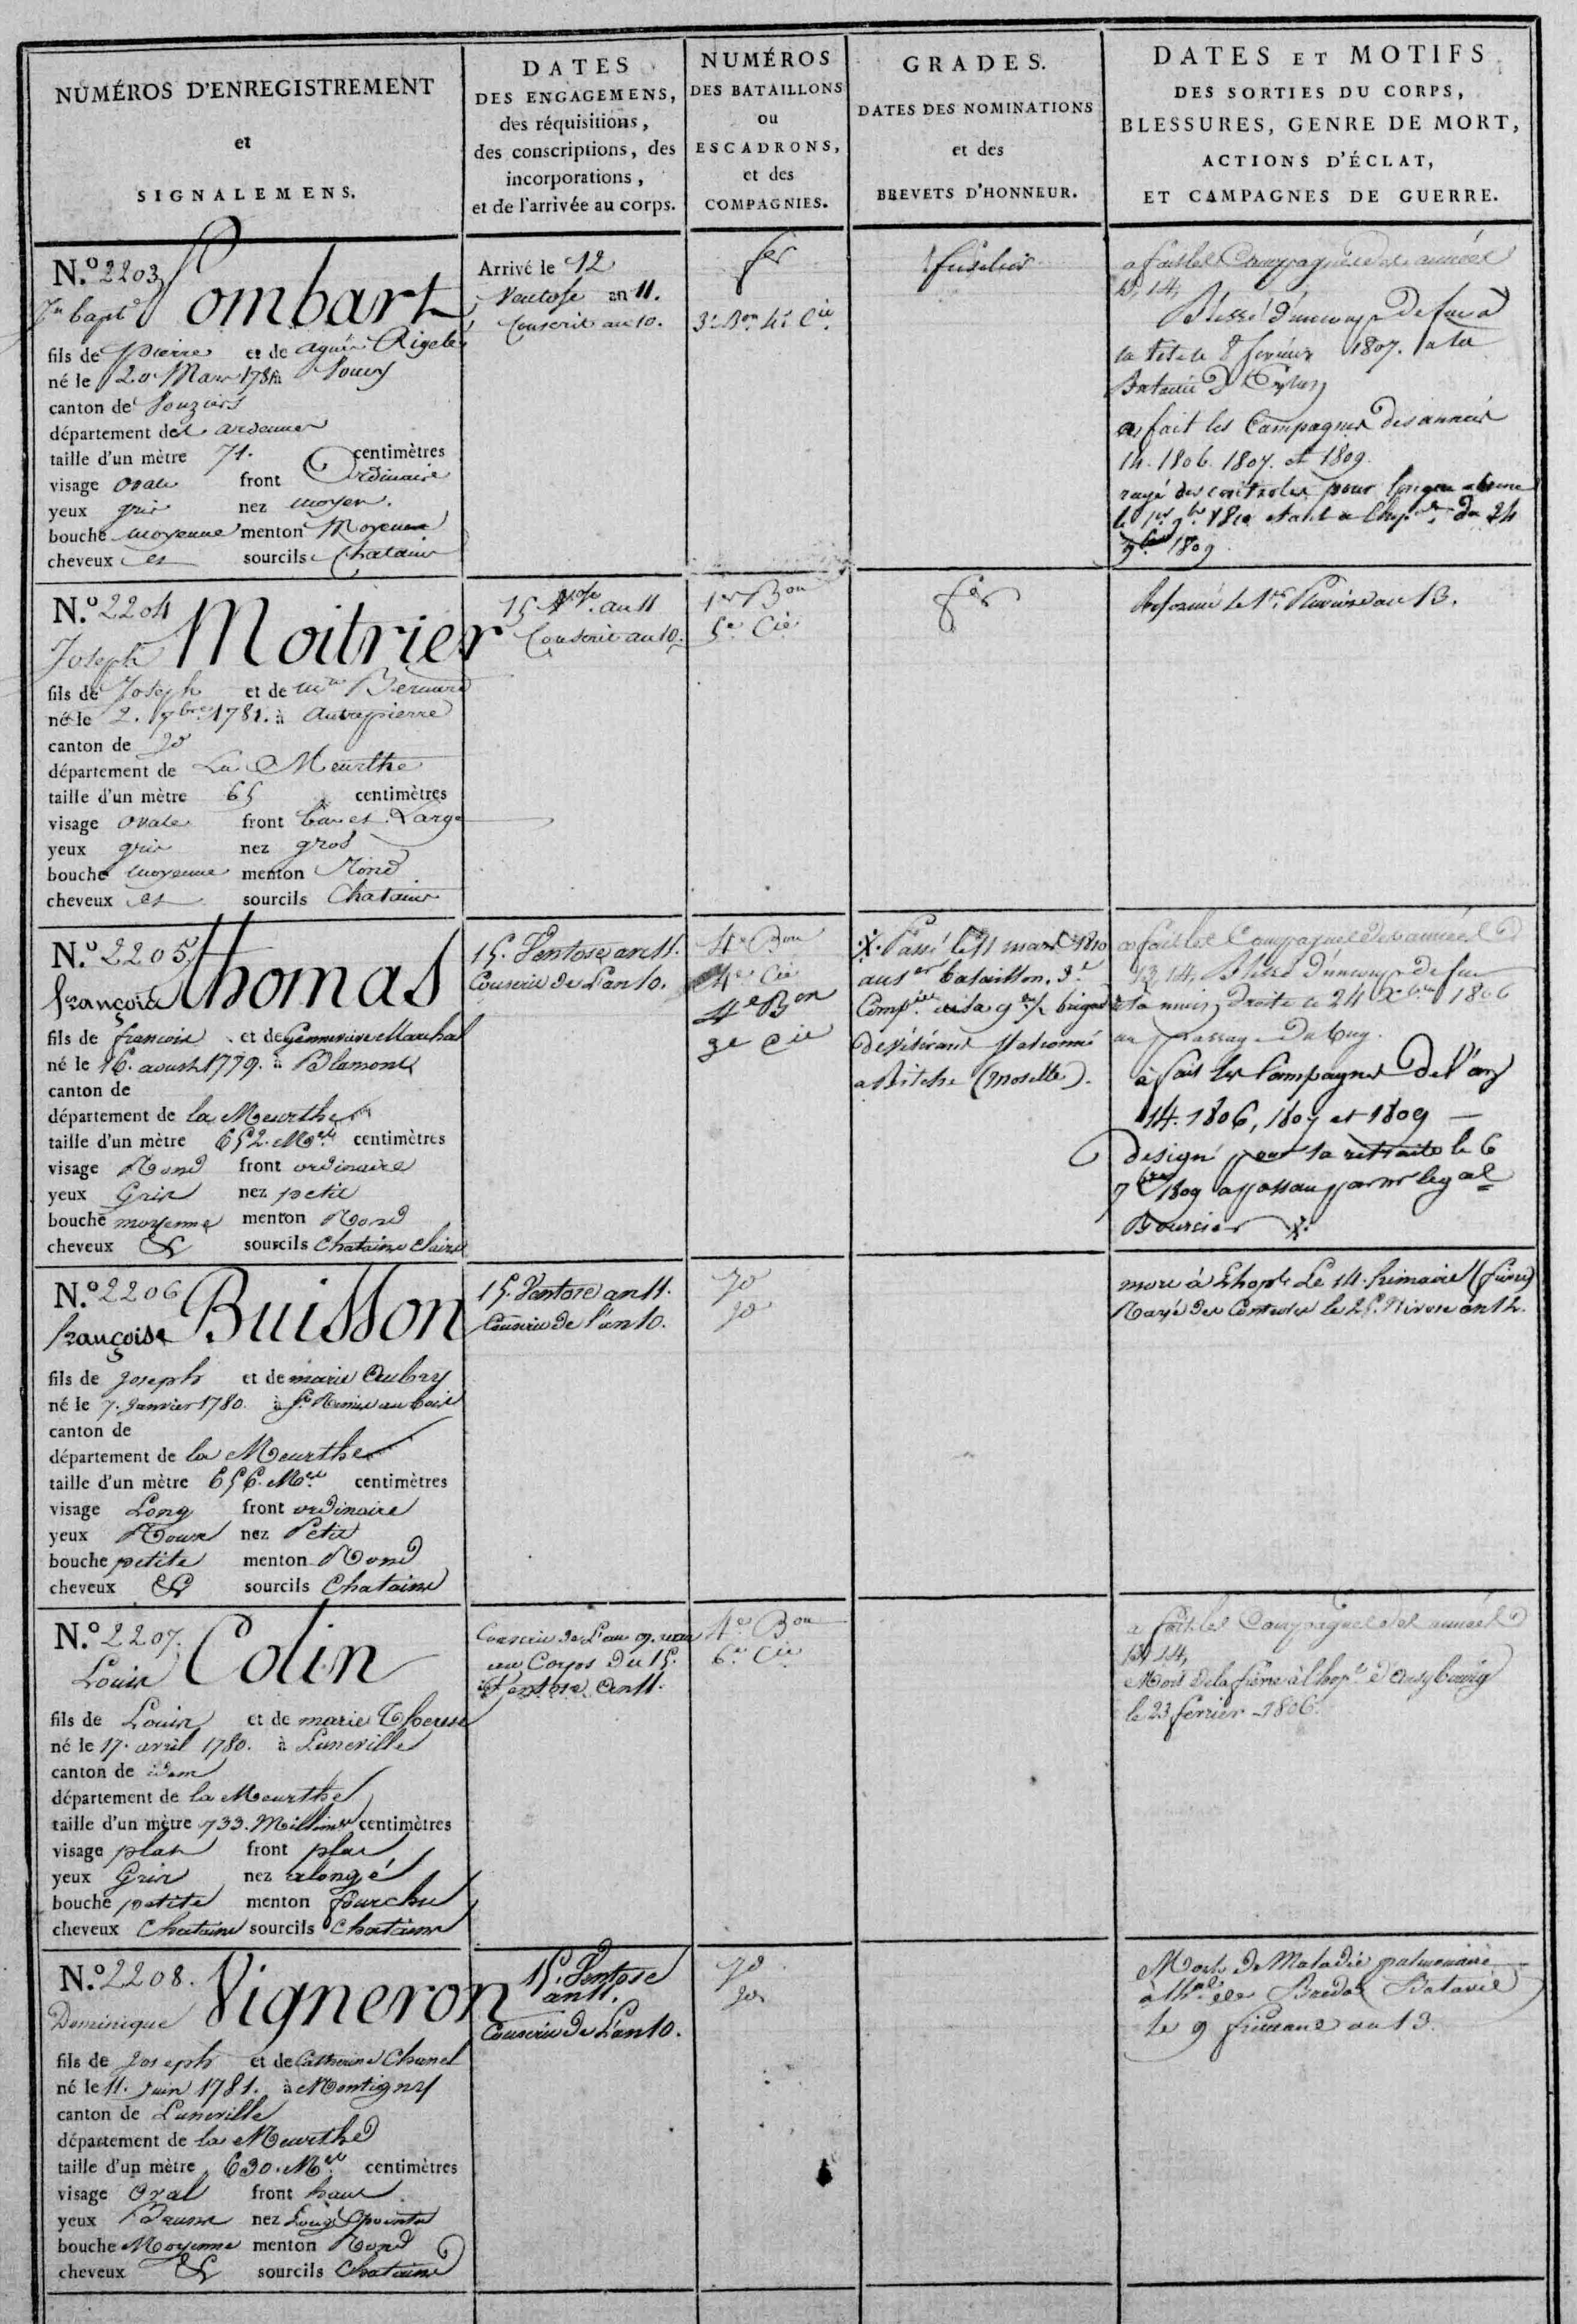 NUMÉROS D'ENREGISTREMENT
et
SIGNALEMENS.
DATES
DES ENGAGEMENS,
des réquisitions,
des conscriptions, des
incorporations,
et de l'arrivée au corps.
NUMÉROS
DES BATAILLONS
ou
ESCADRONS,
et des
COMPAGNIES.
GRADES.
DATES DES NOMINATIONS
et des
BREVETS D'HONNEUR.
DATES ET MOTIFS
DES SORTIES DU CORPS,
BLESSURES, GENRE DE MORT,
ACTIONS D'ÉCLAT,
ET CAMPAGNES DE GUERRE.
N.o 2203
Jn bapte Lombart
fils de pierre et de agnès
né le 20 Mars à Voncq
canton de Vouziers
département des ardennes
taille d'un mètre 71. centimètres
visage ovale front Ordinaire
yeux gris nez moyen.
bouche moyenne menton Moyen
cheveux et sourcils Chatains
Arrivé le 12
Ventose an 11.
Conscrit an 10.
fer
3e Bon 4e Cie
fusilier
a fait les Campagnes des années
13, 14,
Blessé d'un coup de feu a
la tete le 8 fevrier 1807. a la
Bataille D'Eylau
a fait les Campagnes des années
14. 1806. 1807. et 1809.
rayé des controles pour longue absence
le 1er 9bre 1810 etant a l'hop. du 24
9bre 1809
N.o 2204
Joseph Moitrier
fils de Joseph et de Bernard
né le 2. 7bre 1781. à Autrepierre
canton de do
département de La Meurthe
taille d'un mètre 65 centimètres
visage ovale front bas et Large
yeux gris nez gros
bouche moyenne menton Rond
cheveux et sourcils Chatains
15 Vtose an 11
Conscrit an 10.
1er Bon
5e Cie
fer
Reformé le 1er Pluviose an 13.
N.o 2205
françois thomas
fils de francois et de Genevieve Marchal
né le 16. aoust 1779. à Blamont
canton de
département de la Meurthe
taille d'un mètre 652. Mres centimètres
visage Rond front ordinaire
yeux Gris nez petit
bouche moyenne menton Rond
cheveux & sourcils Chatains clairs
15. Ventose an 11.
Conscrit de L'an 10.
4e Bon
4e Cie
4e Bon
3e Cie
Passé le 11 mars 1810
au 1er bataillon, 3e
Compie de la 9e 1/2 brigade
de vétérans stationné
a Bitche (Moselle).
a fait les Campagnes des années
13, 14, Blessé d'un coup de feu
a la main Droite le 24 Xbre 1806
au passage du bug.
à fait les Campagnes de l'an
14. 1806, 1807 et 1809
designé pour la retraite le 6
7bre 1809 a passau par mr le gal
Boursier
N.o 2206
françois Buisson
fils de joseph et de marie Aubry
né le 7. Janvier 1780. à St Remis au bois
canton de
département de la Meurthe
taille d'un mètre 656. Mres centimètres
visage Long front ordinaire
yeux Roux nez Petit
bouche petite menton Rond
cheveux & sourcils Chatains
15. Ventose an 11.
Conscrit de l'an 10.
do
do
mort à L'hopl Le 14. frimaire (fievre)
Rayé des Controles le 25. Nivose an 12.
N.o 2207.
Louis Colin
fils de Louis et de marie Therese
né le 17. avril 1780. à Luneville
canton de idem
département de la Meurthe
taille d'un mètre 733. Millimes centimètres
visage plat front plat
yeux Gris nez alongé
bouche petite menton fourchu
cheveux Chatains sourcils Chatains
Conscrit de L'an 9. venu
au Corps du 15.
Ventose An 11.
4e Bon
6e Cie
a fait les Campagnes des années
13, 14,
Mort de la fièvre à l'hop. d'Augsbourg
le 23 fevrier 1806.
N.o 2208.
Dominique Vigneron
fils de joseph et de Catherine Chanel
né le 11. Juin 1781. à Montigny
canton de Luneville
département de la Meurthe
taille d'un mètre 630. Mres centimètres
visage Oval front haut
yeux Bruns nez Long pointu
bouche Moyenne menton Rond
cheveux & sourcils Chatains
15. Ventose
an 11.
Conscrit de L'an 10.
do
do
Mort de Maladie pulmonaire
à l'hal de Breda (Batavie)
le 9 frimaire an 13.